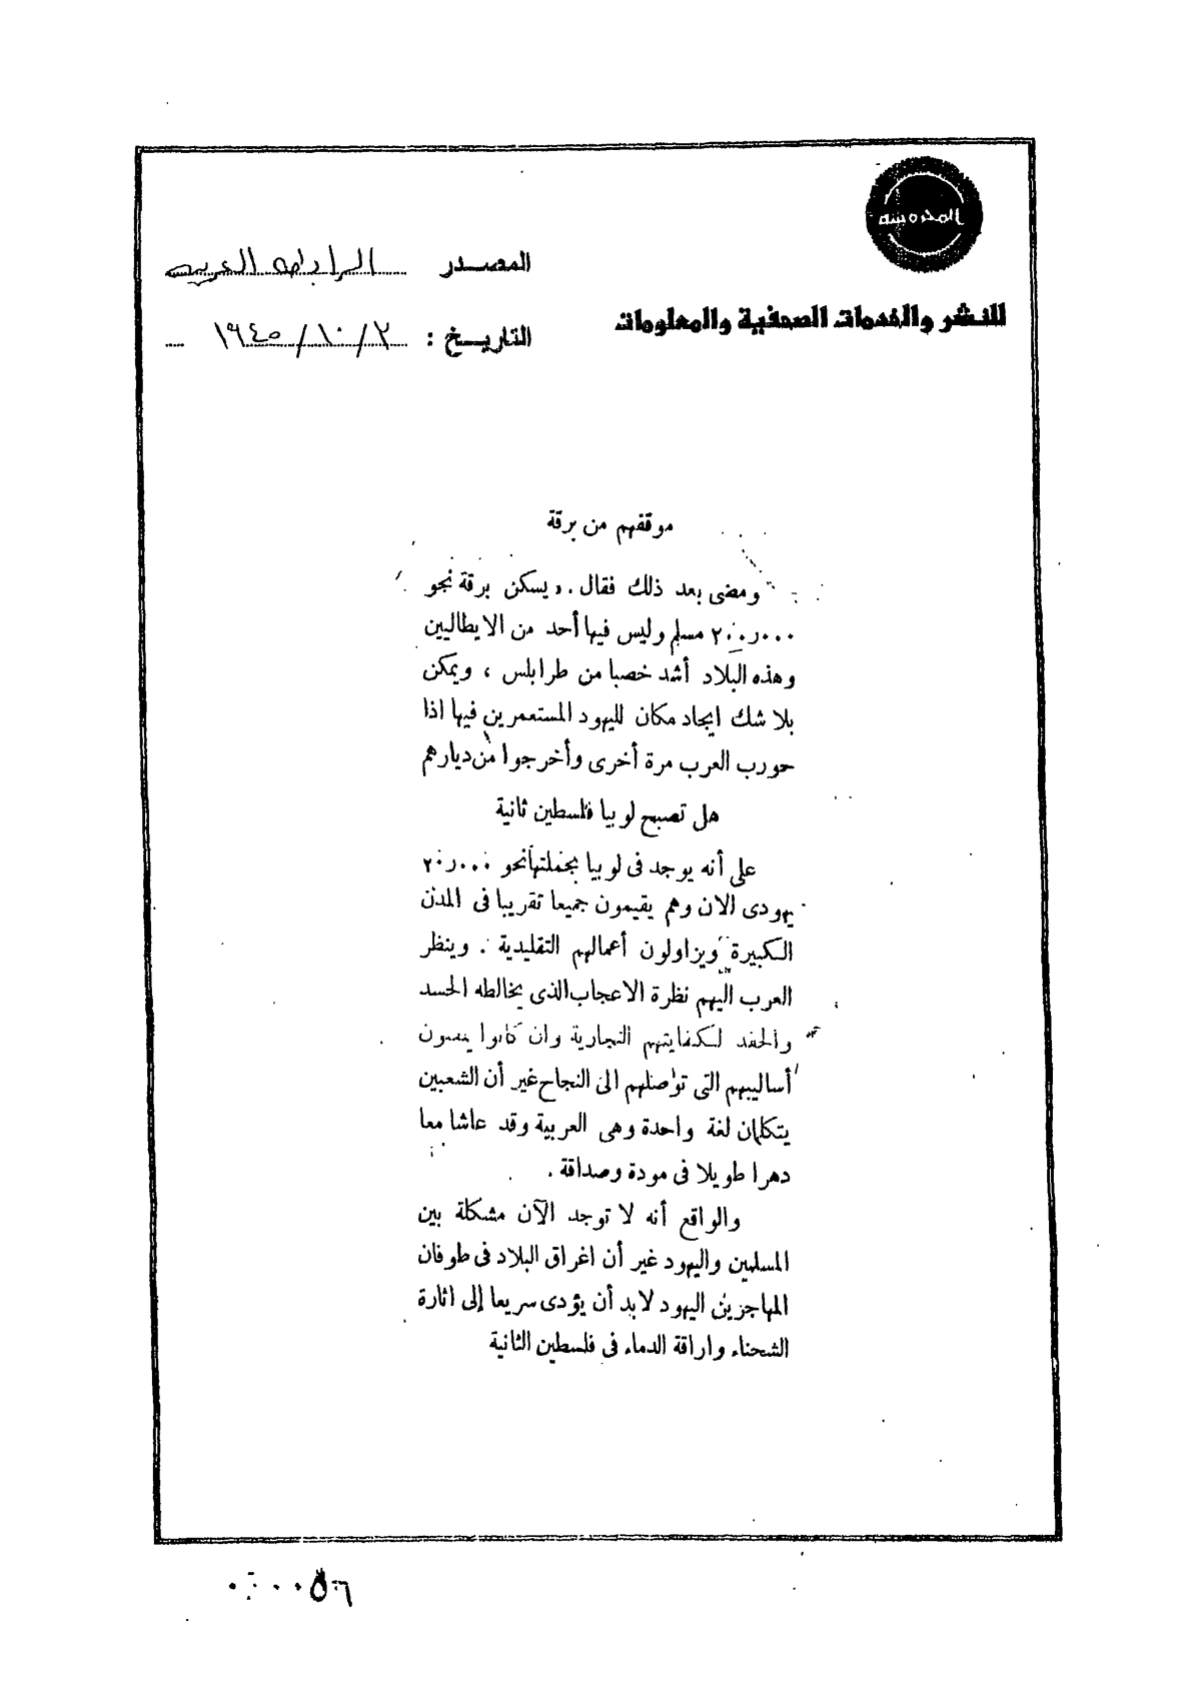 المحروسة
للنشر والخدمات الصحفية والمعلومات
المصدر الرابطة العربية
التاريخ : ٢ / ١٠ / ١٩٤٥
موقفهم من برقة
ومضى بعد ذلك فقال . ويسكن برقة نحو
٢٠٠ر٠٠٠ مسلم وليس فيها أحد من الايطاليين
وهذه البلاد أشد خصبا من طرابلس ، ويمكن
بلا شك ايجاد مكان لليهود المستعمرين فيها اذا
حورب العرب مرة أخرى وأخرجوا من ديارهم
هل تصبح لوبيا فلسطين ثانية
على أنه يوجد فى لوبيا بجملتها نحو ٢٠ر٠٠٠
يهودى الان وهم يقيمون جميعا تقريبا فى المدن
الكبيرة ويزاولون أعمالهم التقليدية . وينظر
العرب اليهم نظرة الاعجاب الذى يخالطه الحسد
والحقد لكفايتهم التجارية وان كانوا ينسون
أساليبهم التى توصلهم الى النجاح غير أن الشعبين
يتكلمان لغة واحدة وهى العربية وقد عاشا معا
دهرا طويلا فى مودة وصداقة .
والواقع أنه لا توجد الآن مشكلة بين
المسلمين واليهود غير أن اغراق البلاد فى طوفان
المهاجرين اليهود لابد أن يؤدى سريعا إلى اثارة
الشحناء واراقة الدماء فى فلسطين الثانية